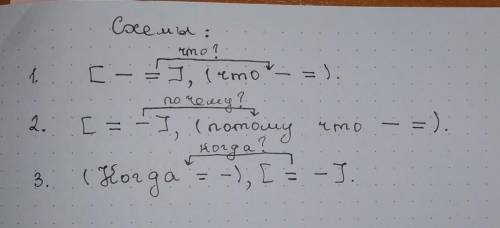 Схемы:
что?
1. [ — = ], (что — =).
почему?
2. [ = — ], (потому что — =).
когда?
3. (Когда = —), [ = — ].